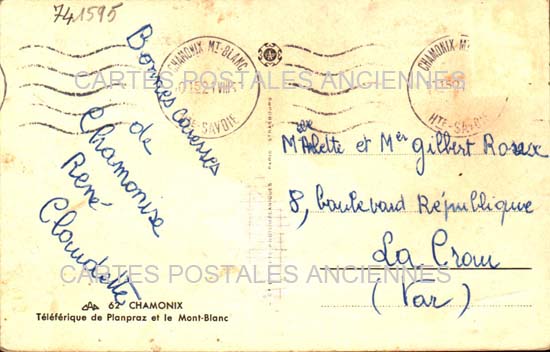 741595
Bonnes caresses
de
Chamonix
René
Claudette
CHAMONIX MT-BLANC
HTE-SAVOIE
CHAMONIX MT
HTE-SAVOIE
CARTES POSTALES ANCIENNES
Melle Arlette et Mer Gilbert Roux
8, boulevard République
La Crau
(Var)
CARTES POSTALES ANCIENNES
62 CHAMONIX
Téléférique de Planpraz et le Mont-Blanc